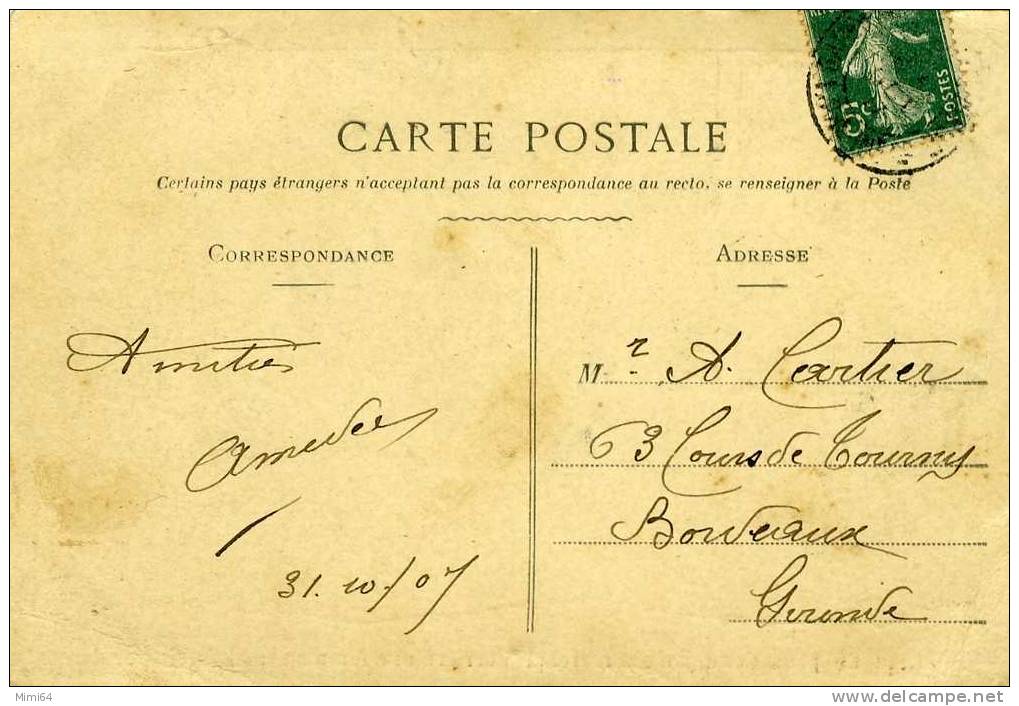 CARTE POSTALE
Certains pays étrangers n'acceptant pas la correspondance au recto, se renseigner à la Poste
CORRESPONDANCE
ADRESSE
Amitiés
Amedee
31. 10/07
Mr. A. Cartier
63 Cours de Tourny
Bordeaux
Gironde
5c
POSTES
Mimi64
delcampe.net